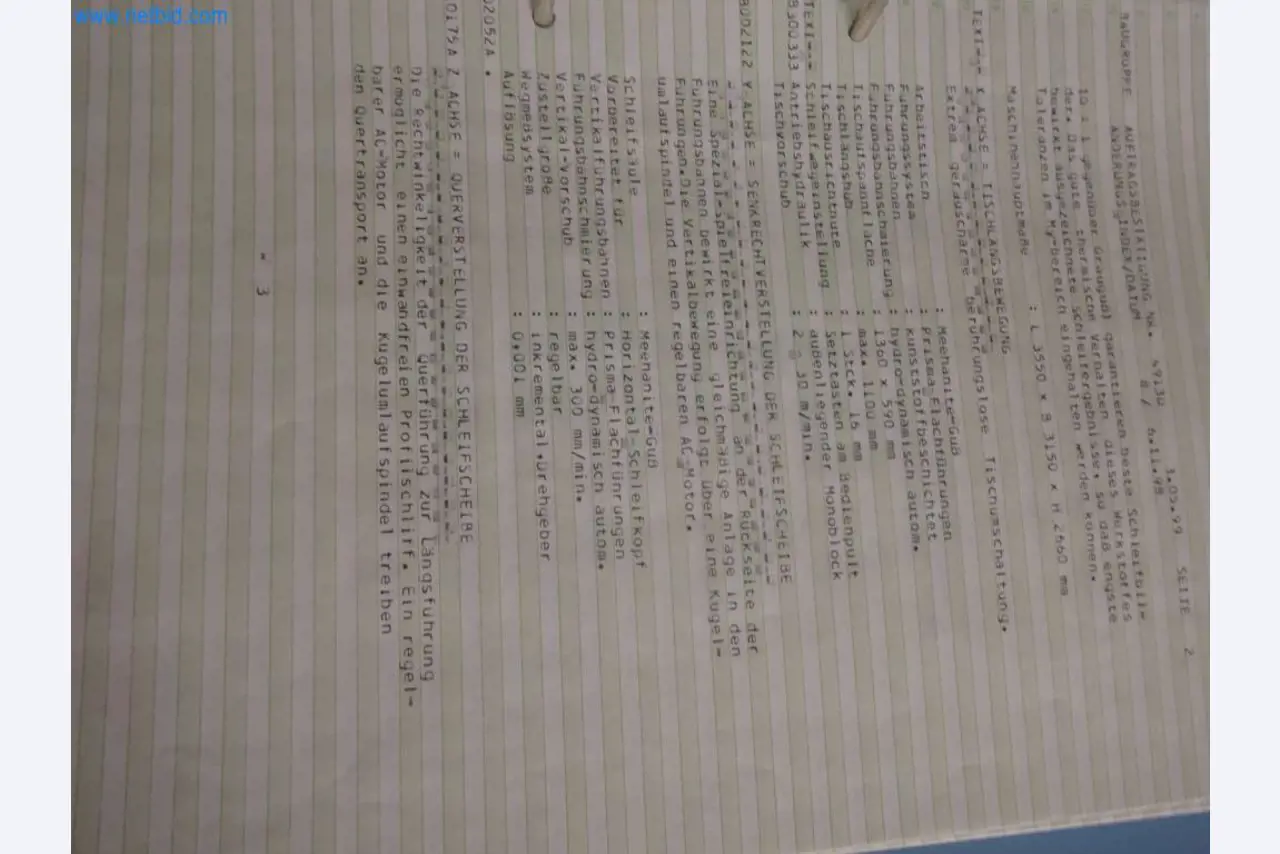 www.netbid.com
3.05.99 SEITE 2
BAUGRUPPE AUFTRAGSBESTÄTIGUNG NR. 49130
ÄNDERUNGS-INDEX/DATUM 8 / 6.11.98
10 : 1 gegenüber Grauguß) garantieren beste Schleifbil-
der. Das gute thermische Verhalten dieses Werkstoffes
bewirkt ausgezeichnete Schleifergebnisse, so daß engste
Toleranzen im My-bereich eingehalten werden können.
Maschinenhauptmaße : L 3550 x B 3150 x H 2660 mm
TEXT--- X ACHSE = TISCHLÄNGSBEWEGUNG
Extrem geräuscharme berührungslose Tischumschaltung.
Arbeitstisch : Meehanite-Guß
Führungssystem : Prisma-Flachführungen
Führungsbahnen : Kunststoffbeschichtet
Führungsbahnschmierung : hydro-dynamisch autom.
Tischaufspannfläche : 1360 x 590 mm
Tischlängshub : max. 1100 mm
Tischausrichtnute : 1 Stck. 16 mm
TEXT--- Schleifwegeinstellung : Setztasten am Bedienpult
8300333 Antriebshydraulik : außenliegender Monoblock
Tischvorschub : 2 - 30 m/min.
8002122 Y ACHSE = SENKRECHTVERSTELLUNG DER SCHLEIFSCHEIBE
Eine Spezial-Spielfreieinrichtung an der Rückseite der
Führungsbahnen bewirkt eine gleichmäßige Anlage in den
Führungen.Die Vertikalbewegung erfolgt über eine Kugel-
umlaufspindel und einen regelbaren AC-Motor.
Schleifsäule : Meehanite-Guß
Vorbereitet für : Horizontal-Schleifkopf
Vertikalführungsbahnen : Prisma-Flachführungen
Führungsbahnschmierung : hydro-dynamisch autom.
Vertikal-Vorschub : max. 300 mm/min.
Zustellgröße : regelbar
Wegmeßsystem : inkremental.Drehgeber
Auflösung : 0.001 mm
02052A .
0175A Z ACHSE = QUERVERSTELLUNG DER SCHLEIFSCHEIBE
Die Rechtwinkeligkeit der Querführung zur Längsführung
ermöglicht einen einwandfreien Profilschliff. Ein regel-
barer AC-Motor und die Kugelumlaufspindel treiben
den Quertransport an.
- 3